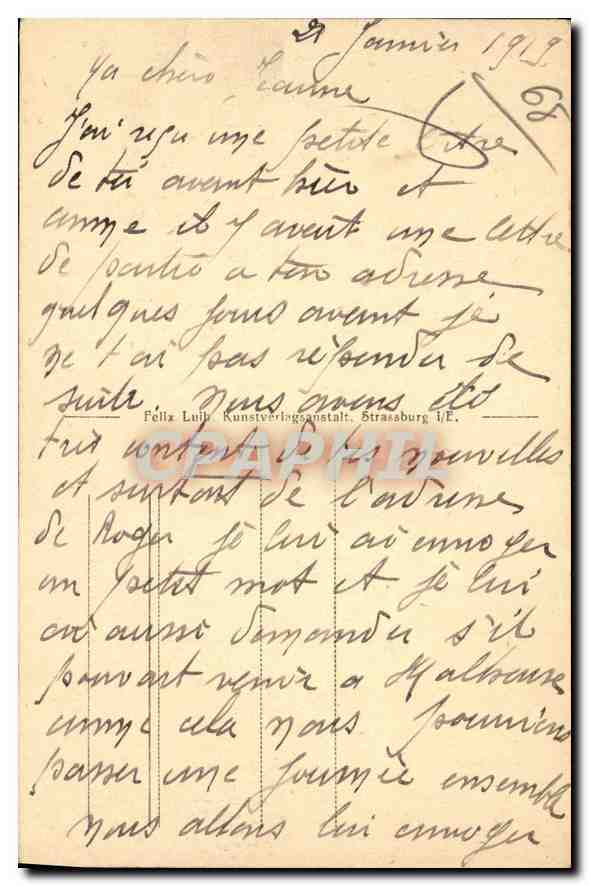 21 Janvier 1919
68
Ma chère Jeanne
J'ai reçu une petite lettre
de toi avant hier et
comme il y avait une lettre
de partie a ton adresse
quelques jours avant je
ne t'ai pas répondu de
suite. Nous avons été
Felix Luib, Kunstverlagsanstalt, Strassburg i/E.
CPAPHIL
très content de tes nouvelles
et surtout de l'adresse
de Roger je lui ai envoyer
un petit mot et je lui
ai aussi demander s'il
pouvait venir a Mulhouse
comme cela nous pourrions
passer une journée ensemble
nous allons lui envoyer